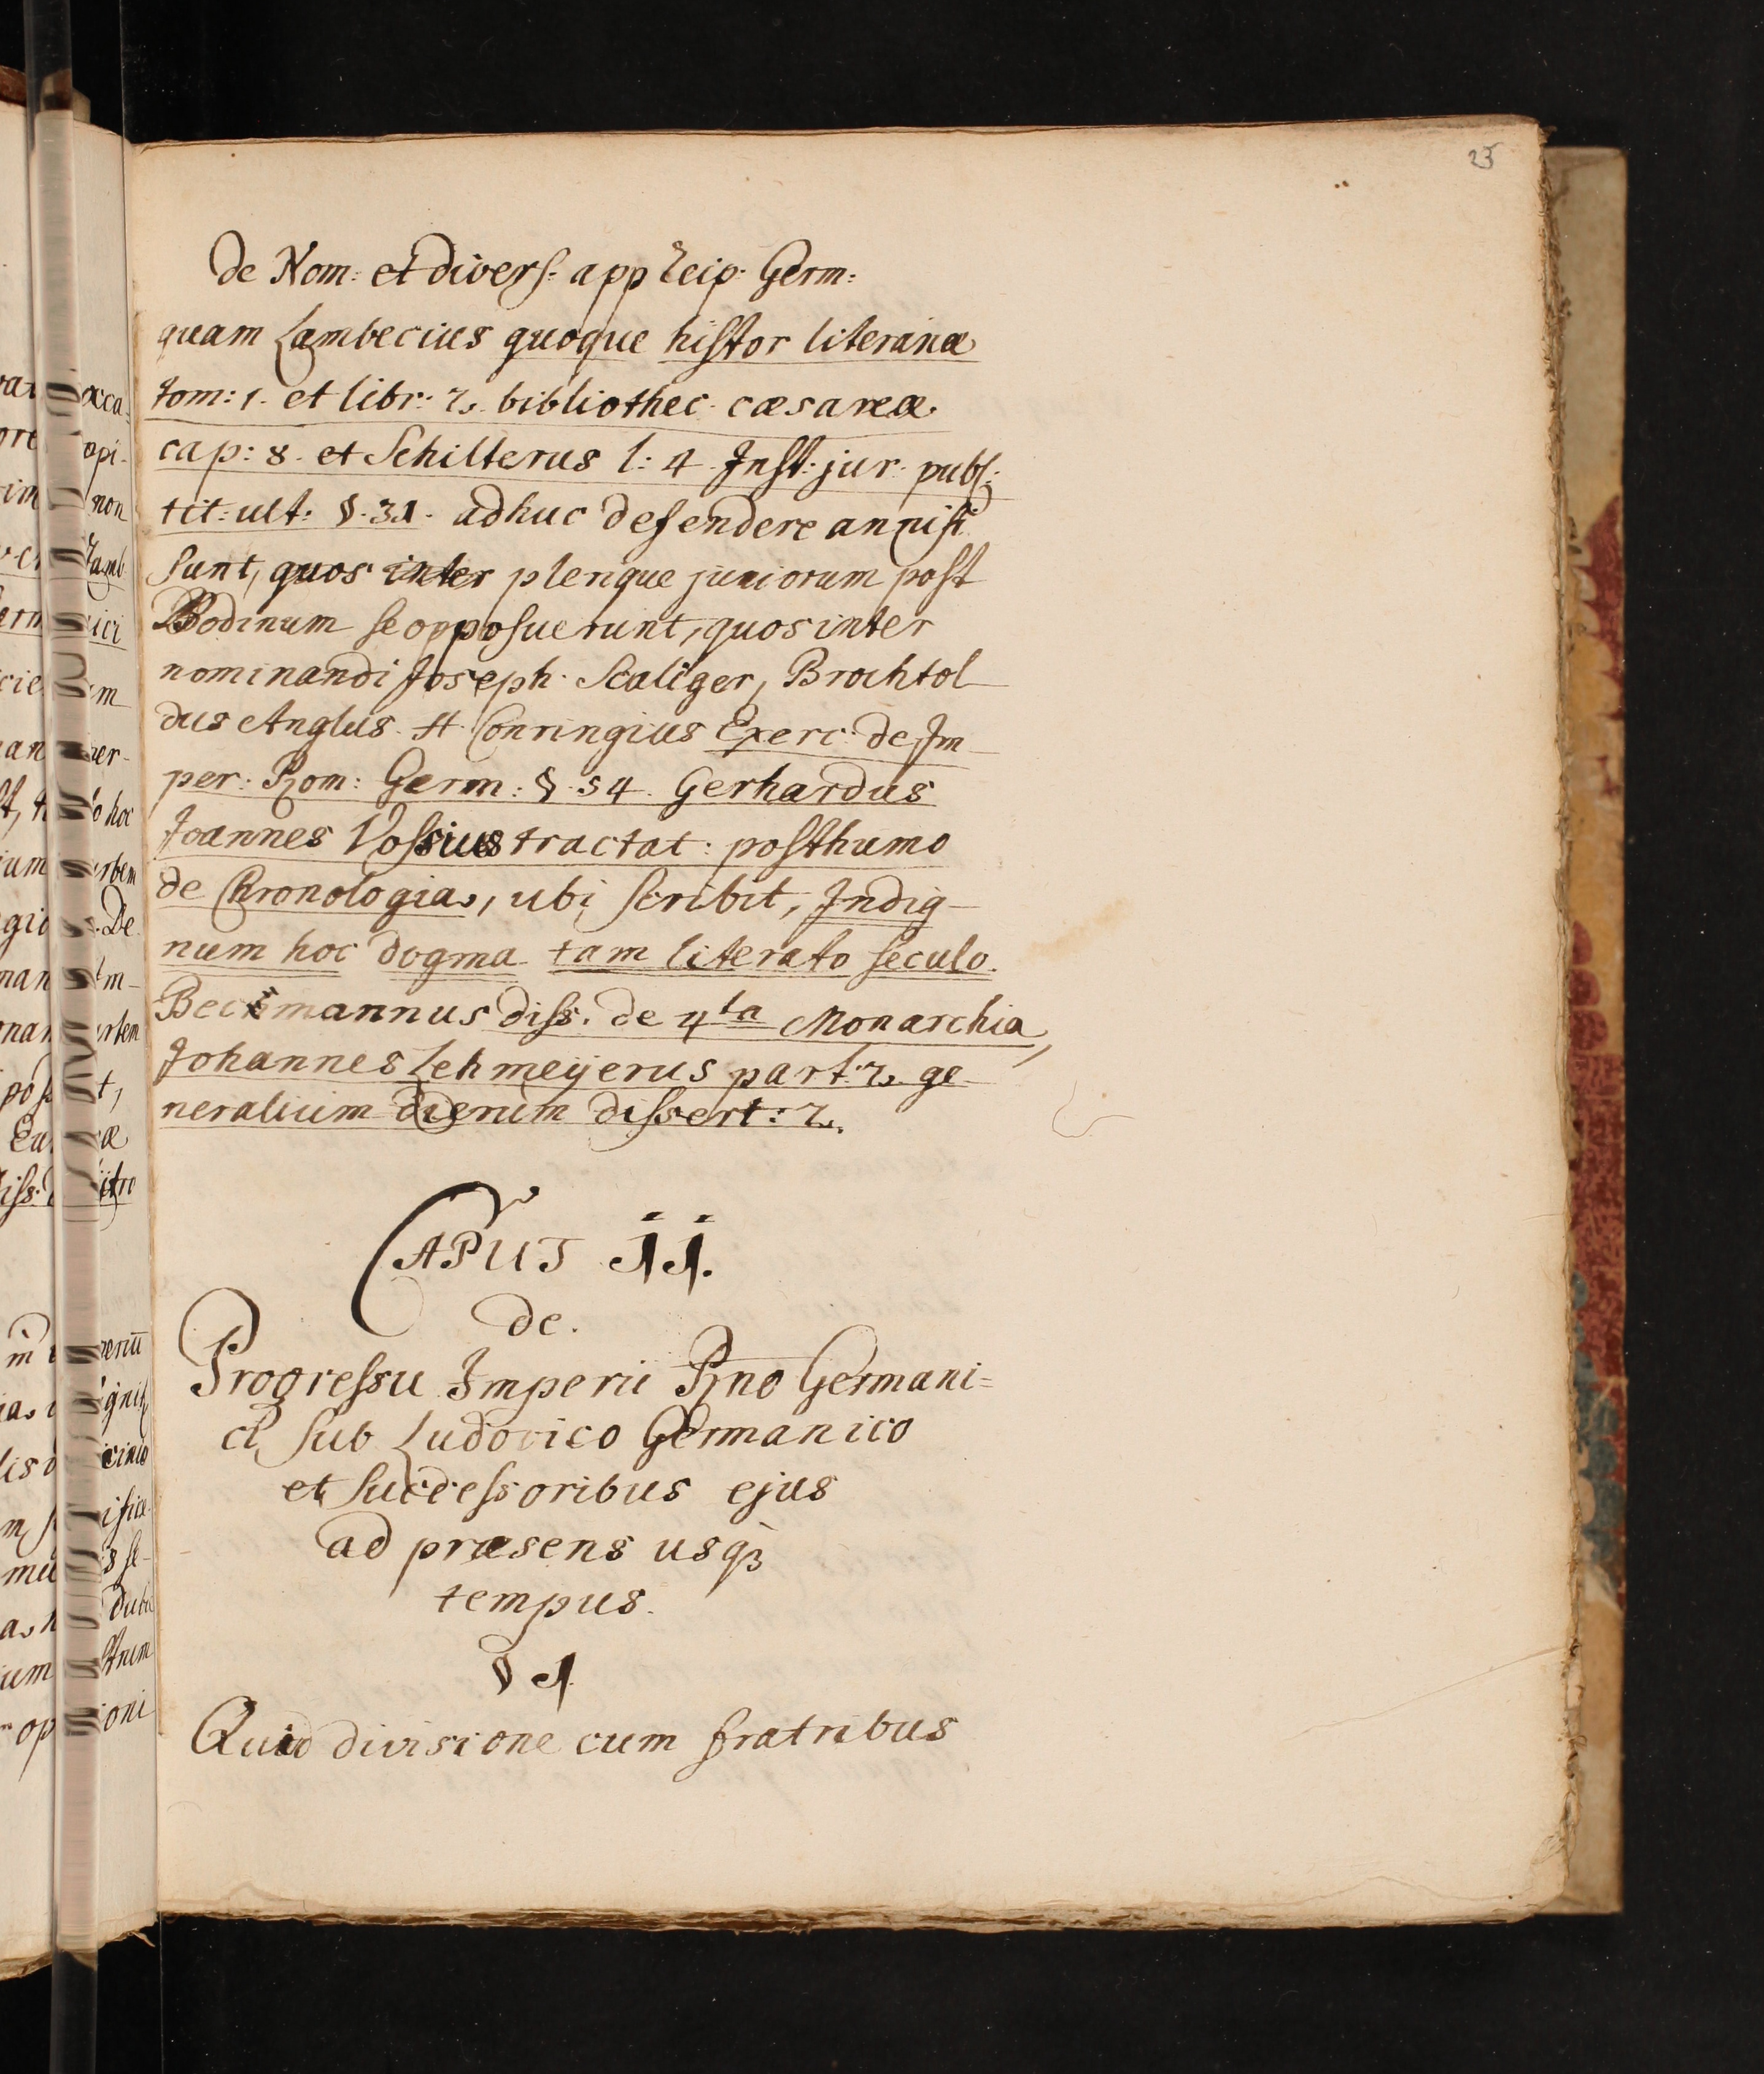 25
de Nom: et divers: app reip: Germ:
quam Lambecius quoque histor literariæ
tom: 1. et libr: 2. bibliothec. cæsareæ.
cap: 8. et Schilterus l: 4. Inst: jur. publ:
tit: ult: §. 31. adhuc defendere annisi
sunt, quos inter plerique juniorum post
Bodinum se opposuerunt, quos inter
nominandi Joseph. Scaliger, Brochtol
dus Anglus. H. Conringius Exerc: de Im
per: Rom: Germ: §. 34. Gerhardus
Joannes Vossius tractat: posthumo
de Chronologia, ubi scribit, Indig-
num hoc dogma tam literato seculo.
Beckmannus diss. de 4ta Monarchia,
Johannes Lehmeyerus part: 2. ge
neralium dierum dissert: 2.
CAPUT II.
de.
Progressu Imperii Rno Germani=
ci, sub Ludovico Germanico
et Successoribus ejus
ad præsens usq3
tempus.
§ 1.
Quid divisione cum fratribus